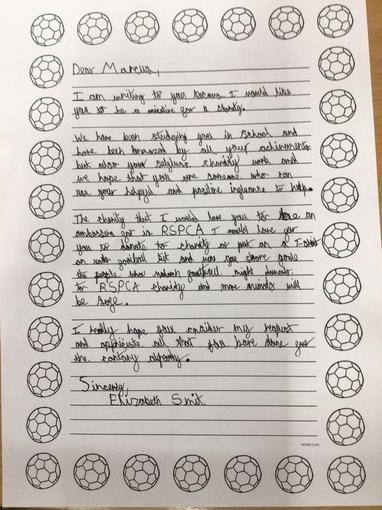 Dear Marcus,
I am writing to you because I would like
you to be a for a charity.
We have been studying you in school and
have been by all your achievements
but also your selfless charity work and
we hope that you are someone who can
use your helpful and positive influence to help.
The charity that I would love you to be an
for is RSPCA I would love for
you to donate to charity or put on a T-shirt
football kit and you score goals
the people who watch football might donate
to RSPCA charity and more animals will
be safe.
I really hope you my request
and all that you have done for
the already.
Sincerly,
Elizabeth Smit
twinkl.com